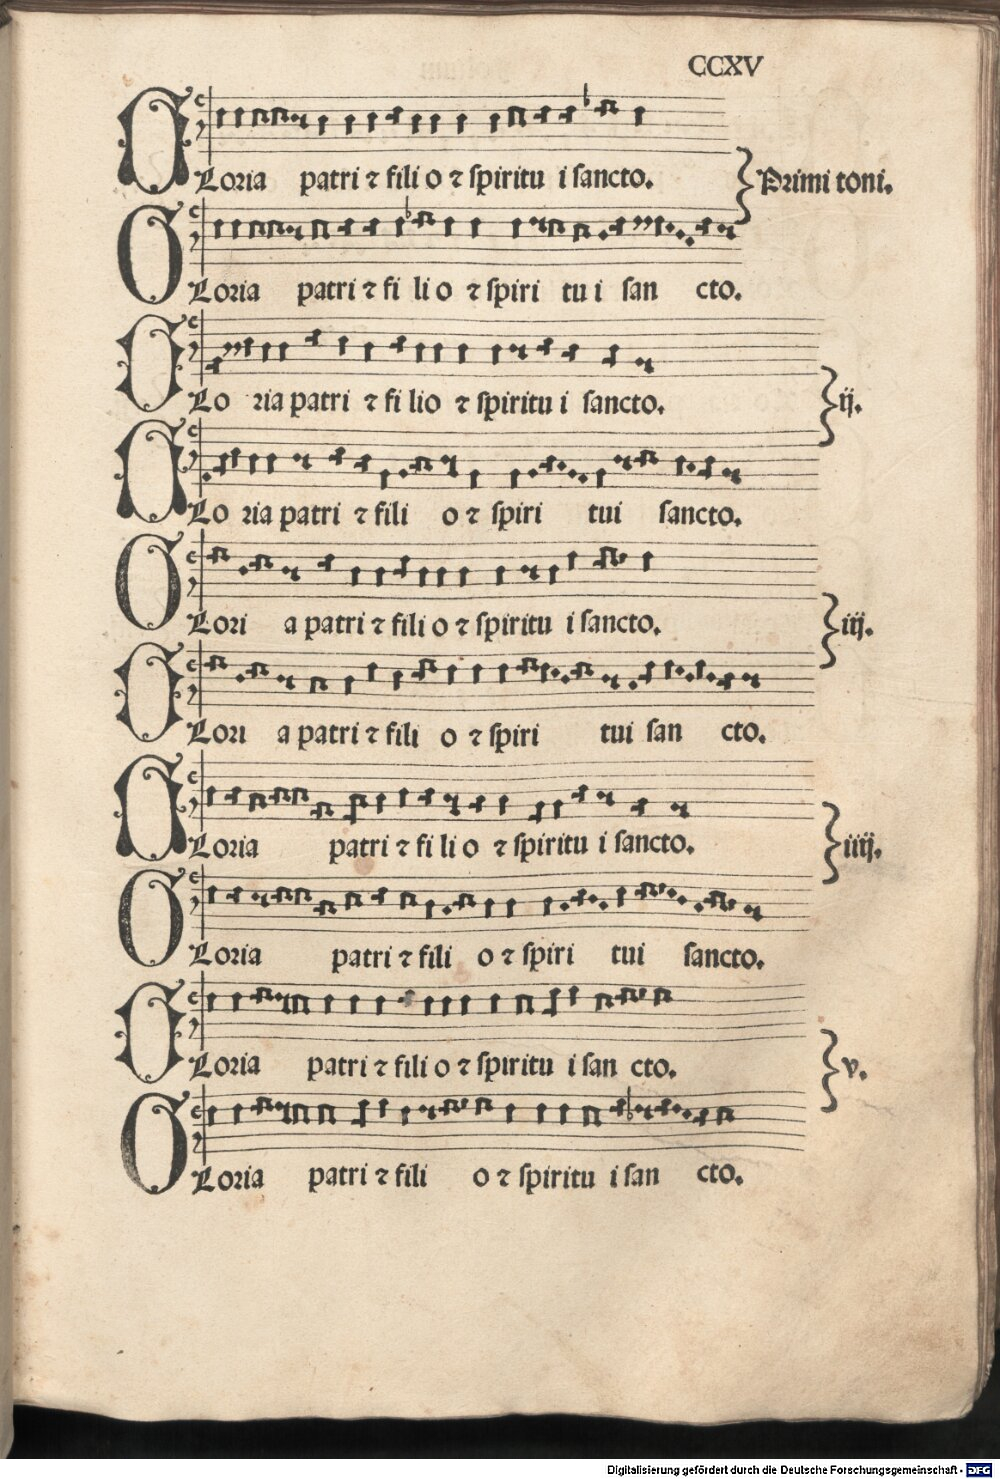 CCXV
GLoria patri ⁊ fili o ⁊ ſpiritu i ſancto. Primi toni.
GLoria patri ⁊ fi li o ⁊ ſpiri tu i ſan cto.
GLo ria patri ⁊ fi lio ⁊ ſpiritu i ſancto. ij.
GLo ria patri ⁊ fili o ⁊ ſpiri tui ſancto.
GLori a patri ⁊ fili o ⁊ ſpiritu i ſancto. iij.
GLori a patri ⁊ fili o ⁊ ſpiri tui ſan cto.
GLoria patri ⁊ fi li o ⁊ ſpiritu i ſancto. iiij.
GLoria patri ⁊ fili o ⁊ ſpiri tui ſancto.
GLoria patri ⁊ fili o ⁊ ſpiritu i ſan cto. v.
GLoria patri ⁊ fili o ⁊ ſpiritu i ſan cto.
Digitalisierung gefördert durch die Deutsche Forschungsgemeinschaft - DFG